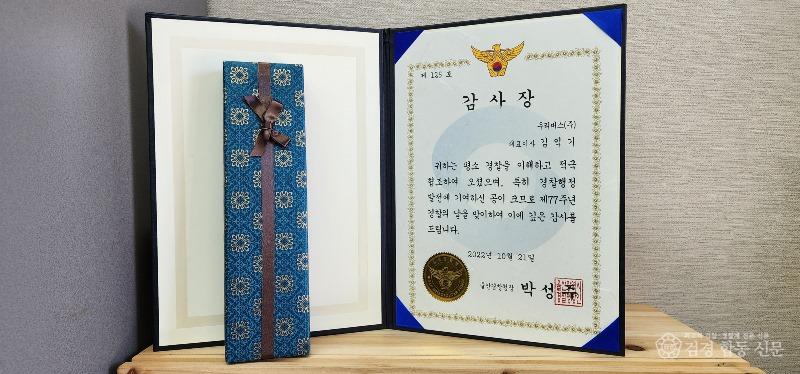 제 125 호
감 사 장
우리버스(주)
대표이사 김 익 기
귀하는 평소 경찰을 이해하고 적극
협조하여 오셨으며, 특히 경찰행정
발전에 기여하신 공이 크므로 제77주년
경찰의 날을 맞이하여 이에 깊은 감사를
드립니다.
2022년 10월 21일
울산경찰청장 박 성
검경 합동 신문